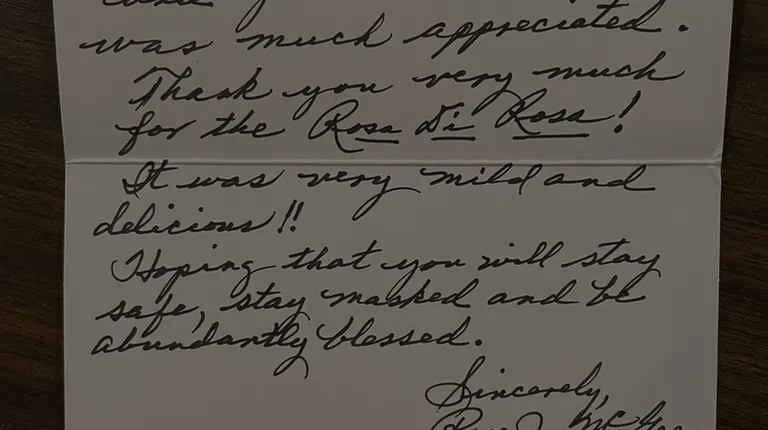 was much appreciated.
Thank you very much
for the Rosa Di Rosa!
It was very mild and
delicious!!
Hoping that you will stay
safe, stay masked and be
abundantly blessed.
Sincerely,